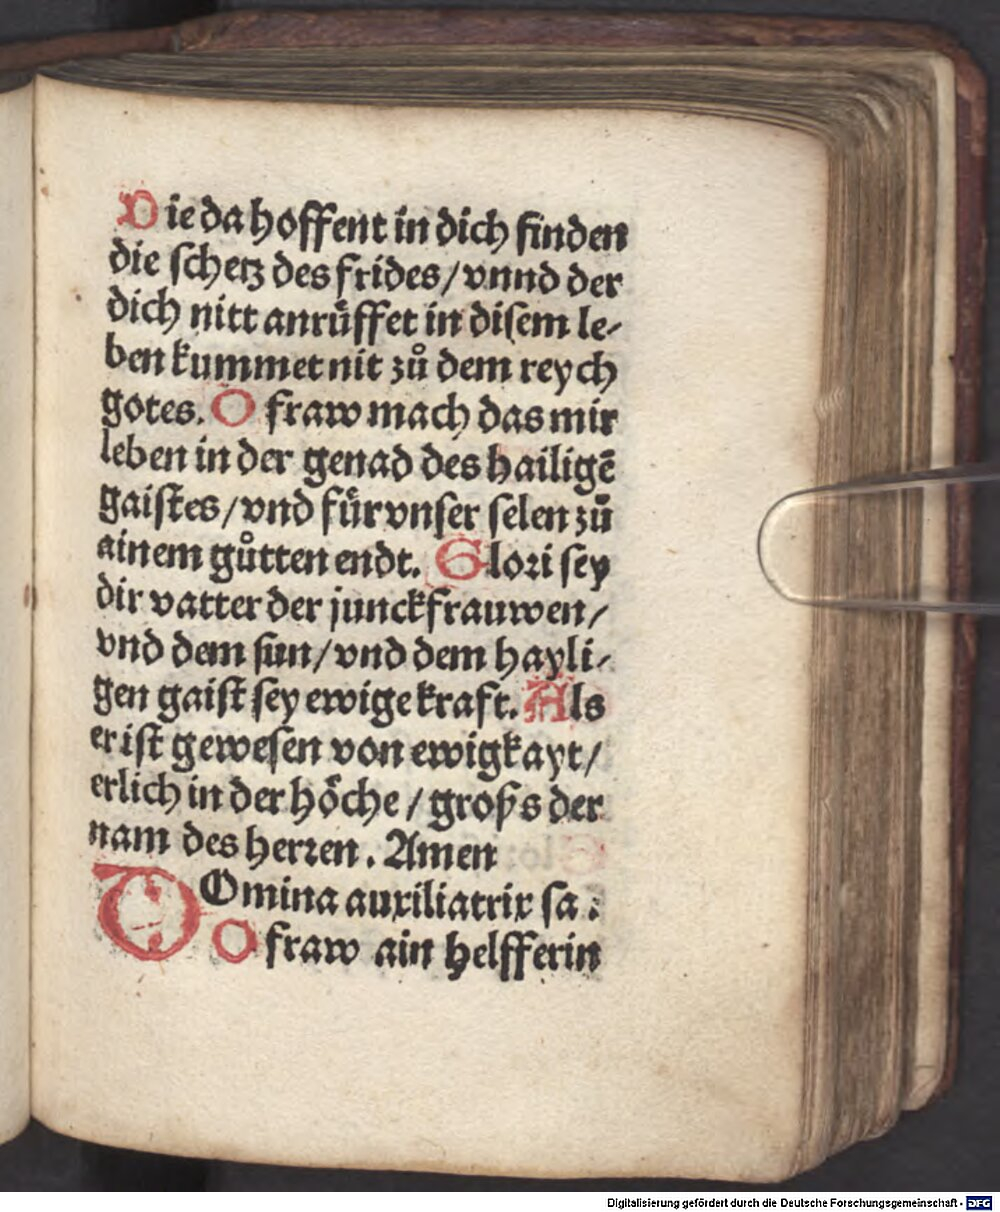 Die da hoffent in dich finden
die schetz des frides/vnnd der
dich nitt anruͤffet in disem le-
ben kummet nit zů dem reych
gotes. O fraw mach das mir
leben in der genad des hailigē
gaistes/vnd fuͤr vnser selen zů
ainem gůtten endt. Glori sey
dir vatter der junckfrauwen/
vnd dem sun/vnd dem hayli-
gen gaist sey ewige kraft. Als
er ist gewesen von ewigkayt/
erlich in der hoͤche/groß der
nam des herren. Amen
DOmina auxiliatrix sa.
O fraw ain helfferin
Digitalisierung gefördert durch die Deutsche Forschungsgemeinschaft - DFG